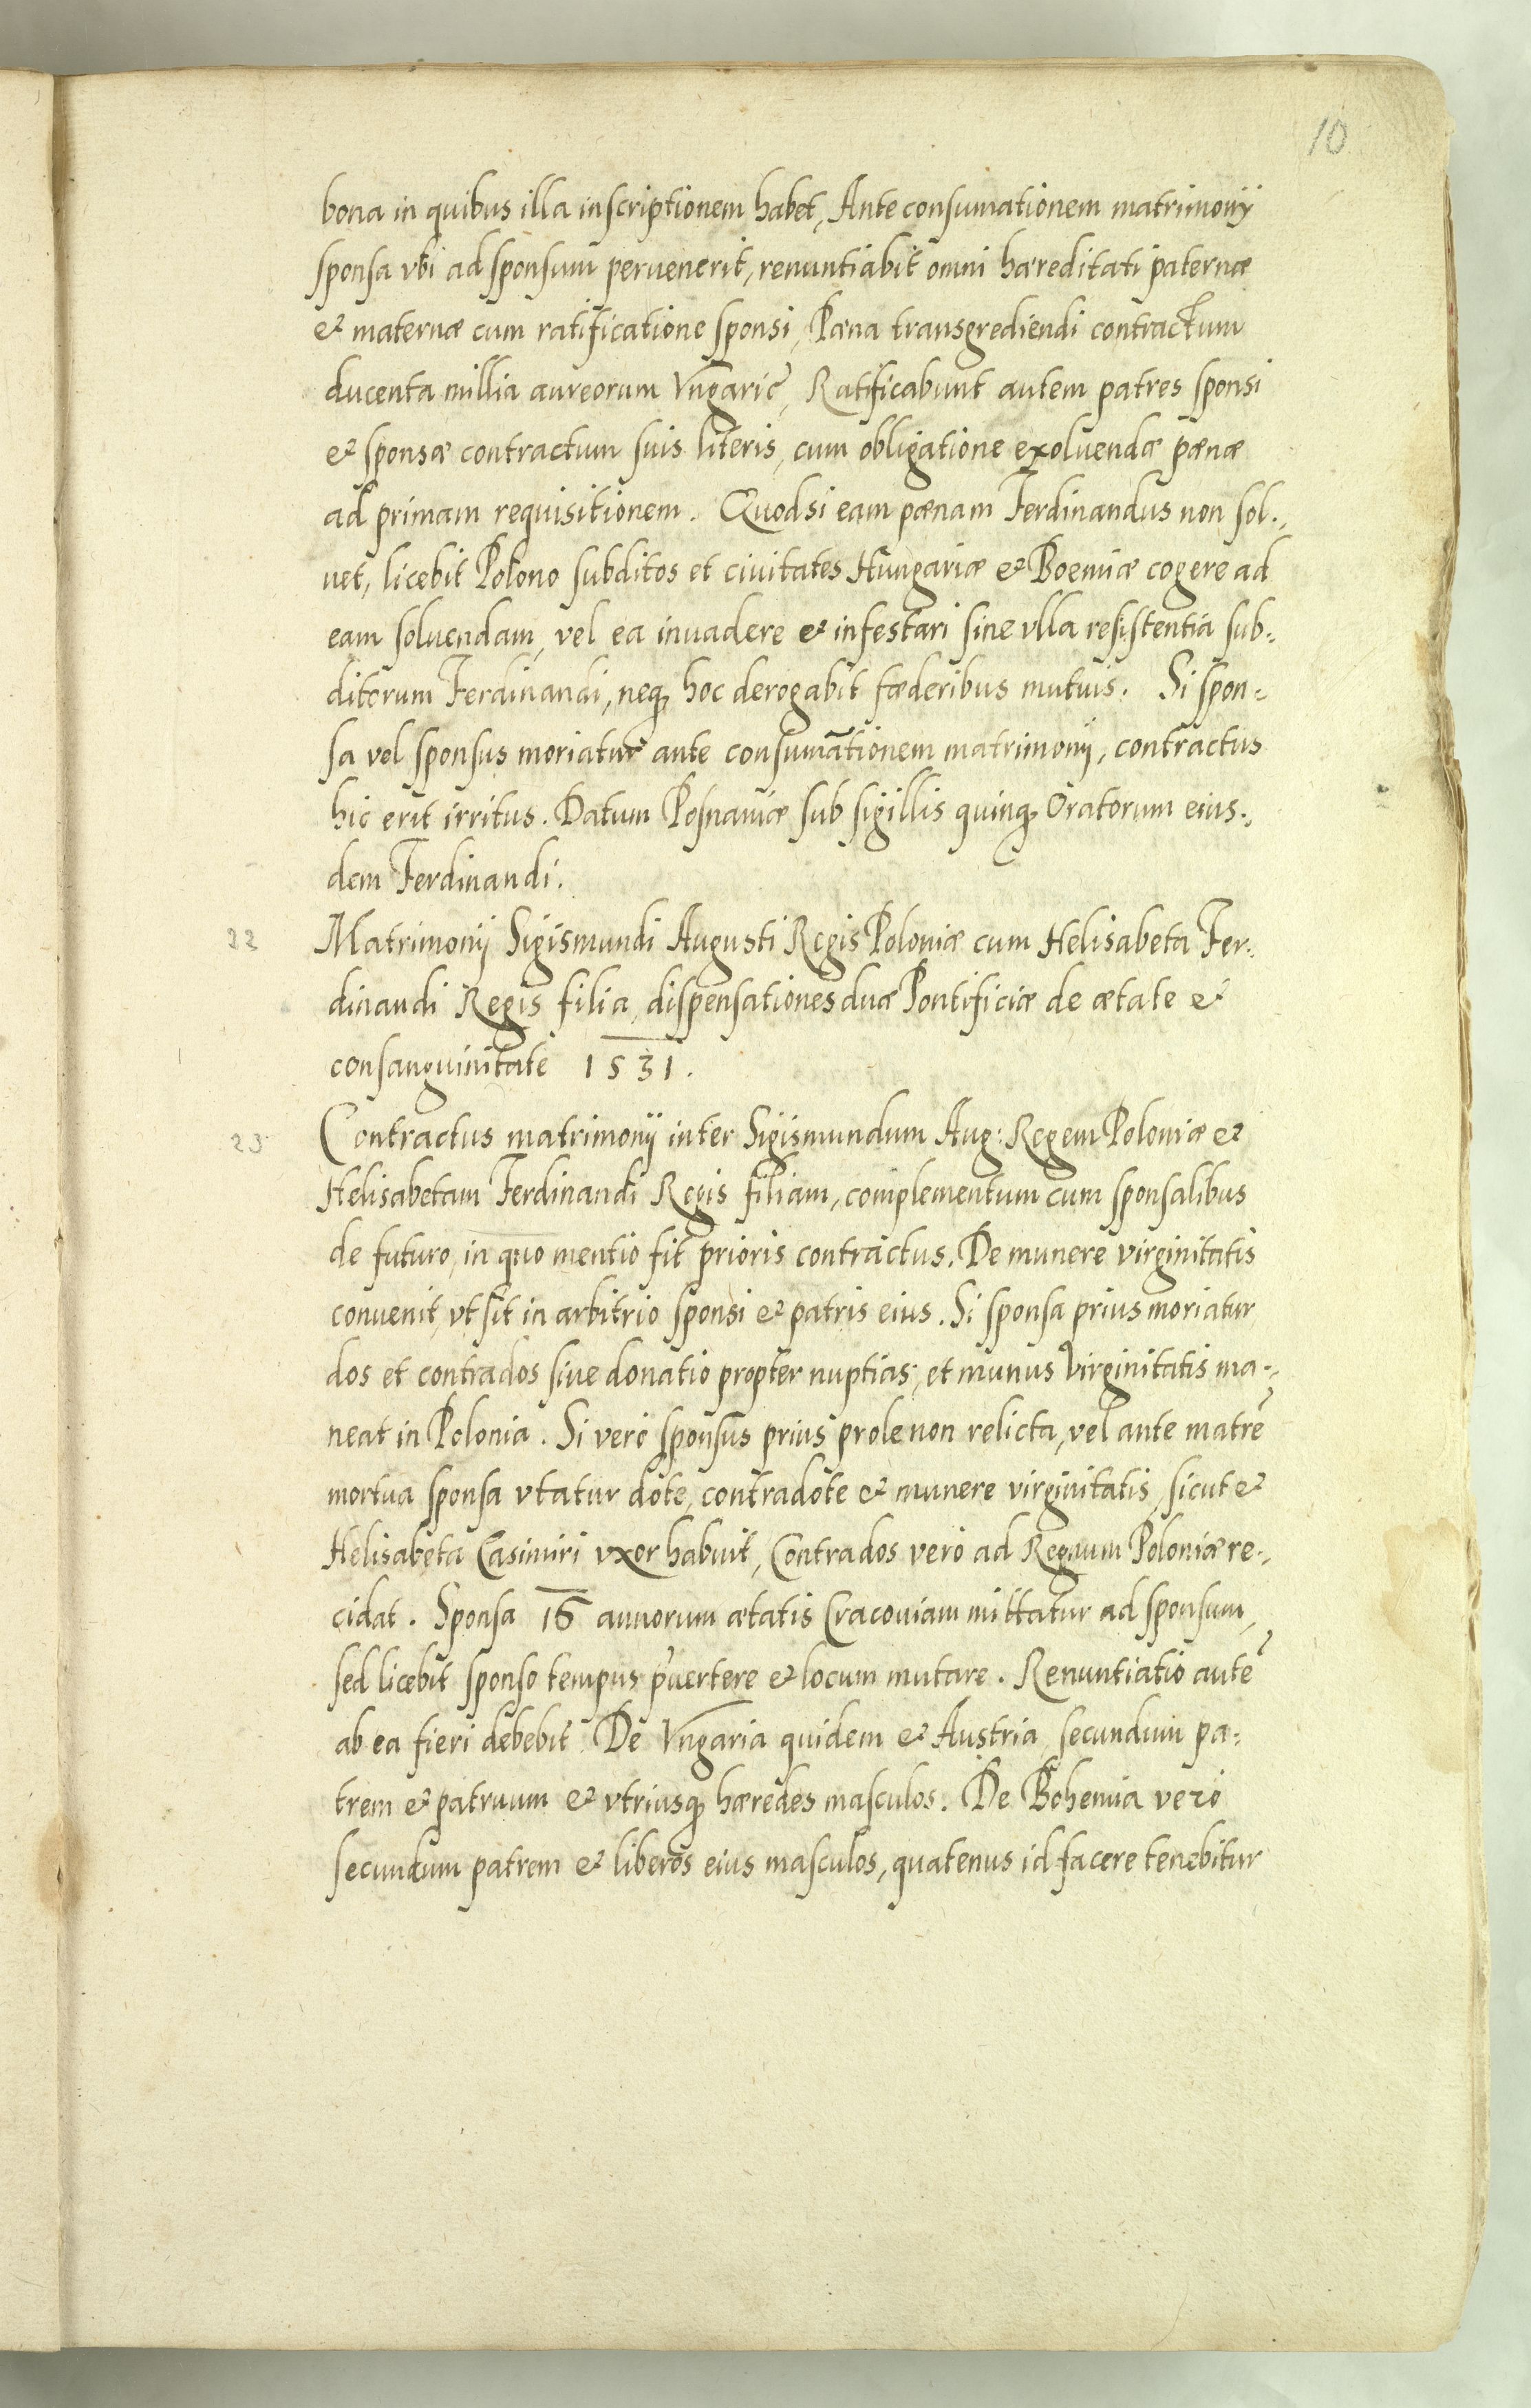 10
bona in quibus illa inscriptionem habet, Ante consumationem matrimonij
sponsa vbi ad sponsum peruenerit, renuntiabit omni hæreditati paternæ
& maternæ cum ratificatione sponsi, Pæna transgrediendi contractum
ducenta millia aureorum Vngaric̃, Ratificabunt autem patres sponsi
& sponsæ contractum suis literis, cum obligatione exoluendæ pænæ
ad primam requisitionem. Quodsi eam pænam Ferdinandus non sol-
uet, licebit Polono subditos et ciuitates Hungariæ & Boemiæ cogere ad
eam soluendam, vel ea inuadere & infestari sine vlla resistentia sub-
ditorum Ferdinandi, neq̃ hoc derogabit fæderibus mutuis. Si spon-
sa vel sponsus moriatur ante consumãtionem matrimonij, contractus
hic erit irritus. Datum Posnaniæ sub sigillis quinq̃ Oratorum eius-
dem Ferdinandi.
22 Matrimonij Sigismundi Augusti Regis Poloniæ cum Helisabeta Fer-
dinandi Regis filia, dispensationes duæ Pontificiæ de ætate &
consanguinitate 1531.
23 Contractus matrimonij inter Sigismundum Aug: Regem Poloniæ &
Helisabetam Ferdinandi Regis filiam, complementum cum sponsalibus
de futuro, in quo mentio fit prioris contractus. De munere virginitatis
conuenit, vt sit in arbitrio sponsi & patris eius. Si sponsa prius moriatur
dos et contrados siue donatio propter nuptias, et munus virginitatis ma-
neat in Polonia. Si vero sponsus prius prole non relicta, vel ante matrẽ
mortua sponsa vtatur dote, contradote & munere virginitatis, sicut &
Helisabeta Casimiri vxor habuit, Contrados vero ad Regnum Poloniæ re-
cidat. Sponsa 16 annorum ætatis Cracouiam mittatur ad sponsum,
sed licebit sponso tempus p̃uertere & locum mutare. Renuntiatio autẽ
ab ea fieri debebit. De Vngaria quidem & Austria secundum pa-
trem & patruum & vtriusq̃ hæredes masculos. De Bohemia vero
secundum patrem & liberos eius masculos, quatenus id facere tenebitur